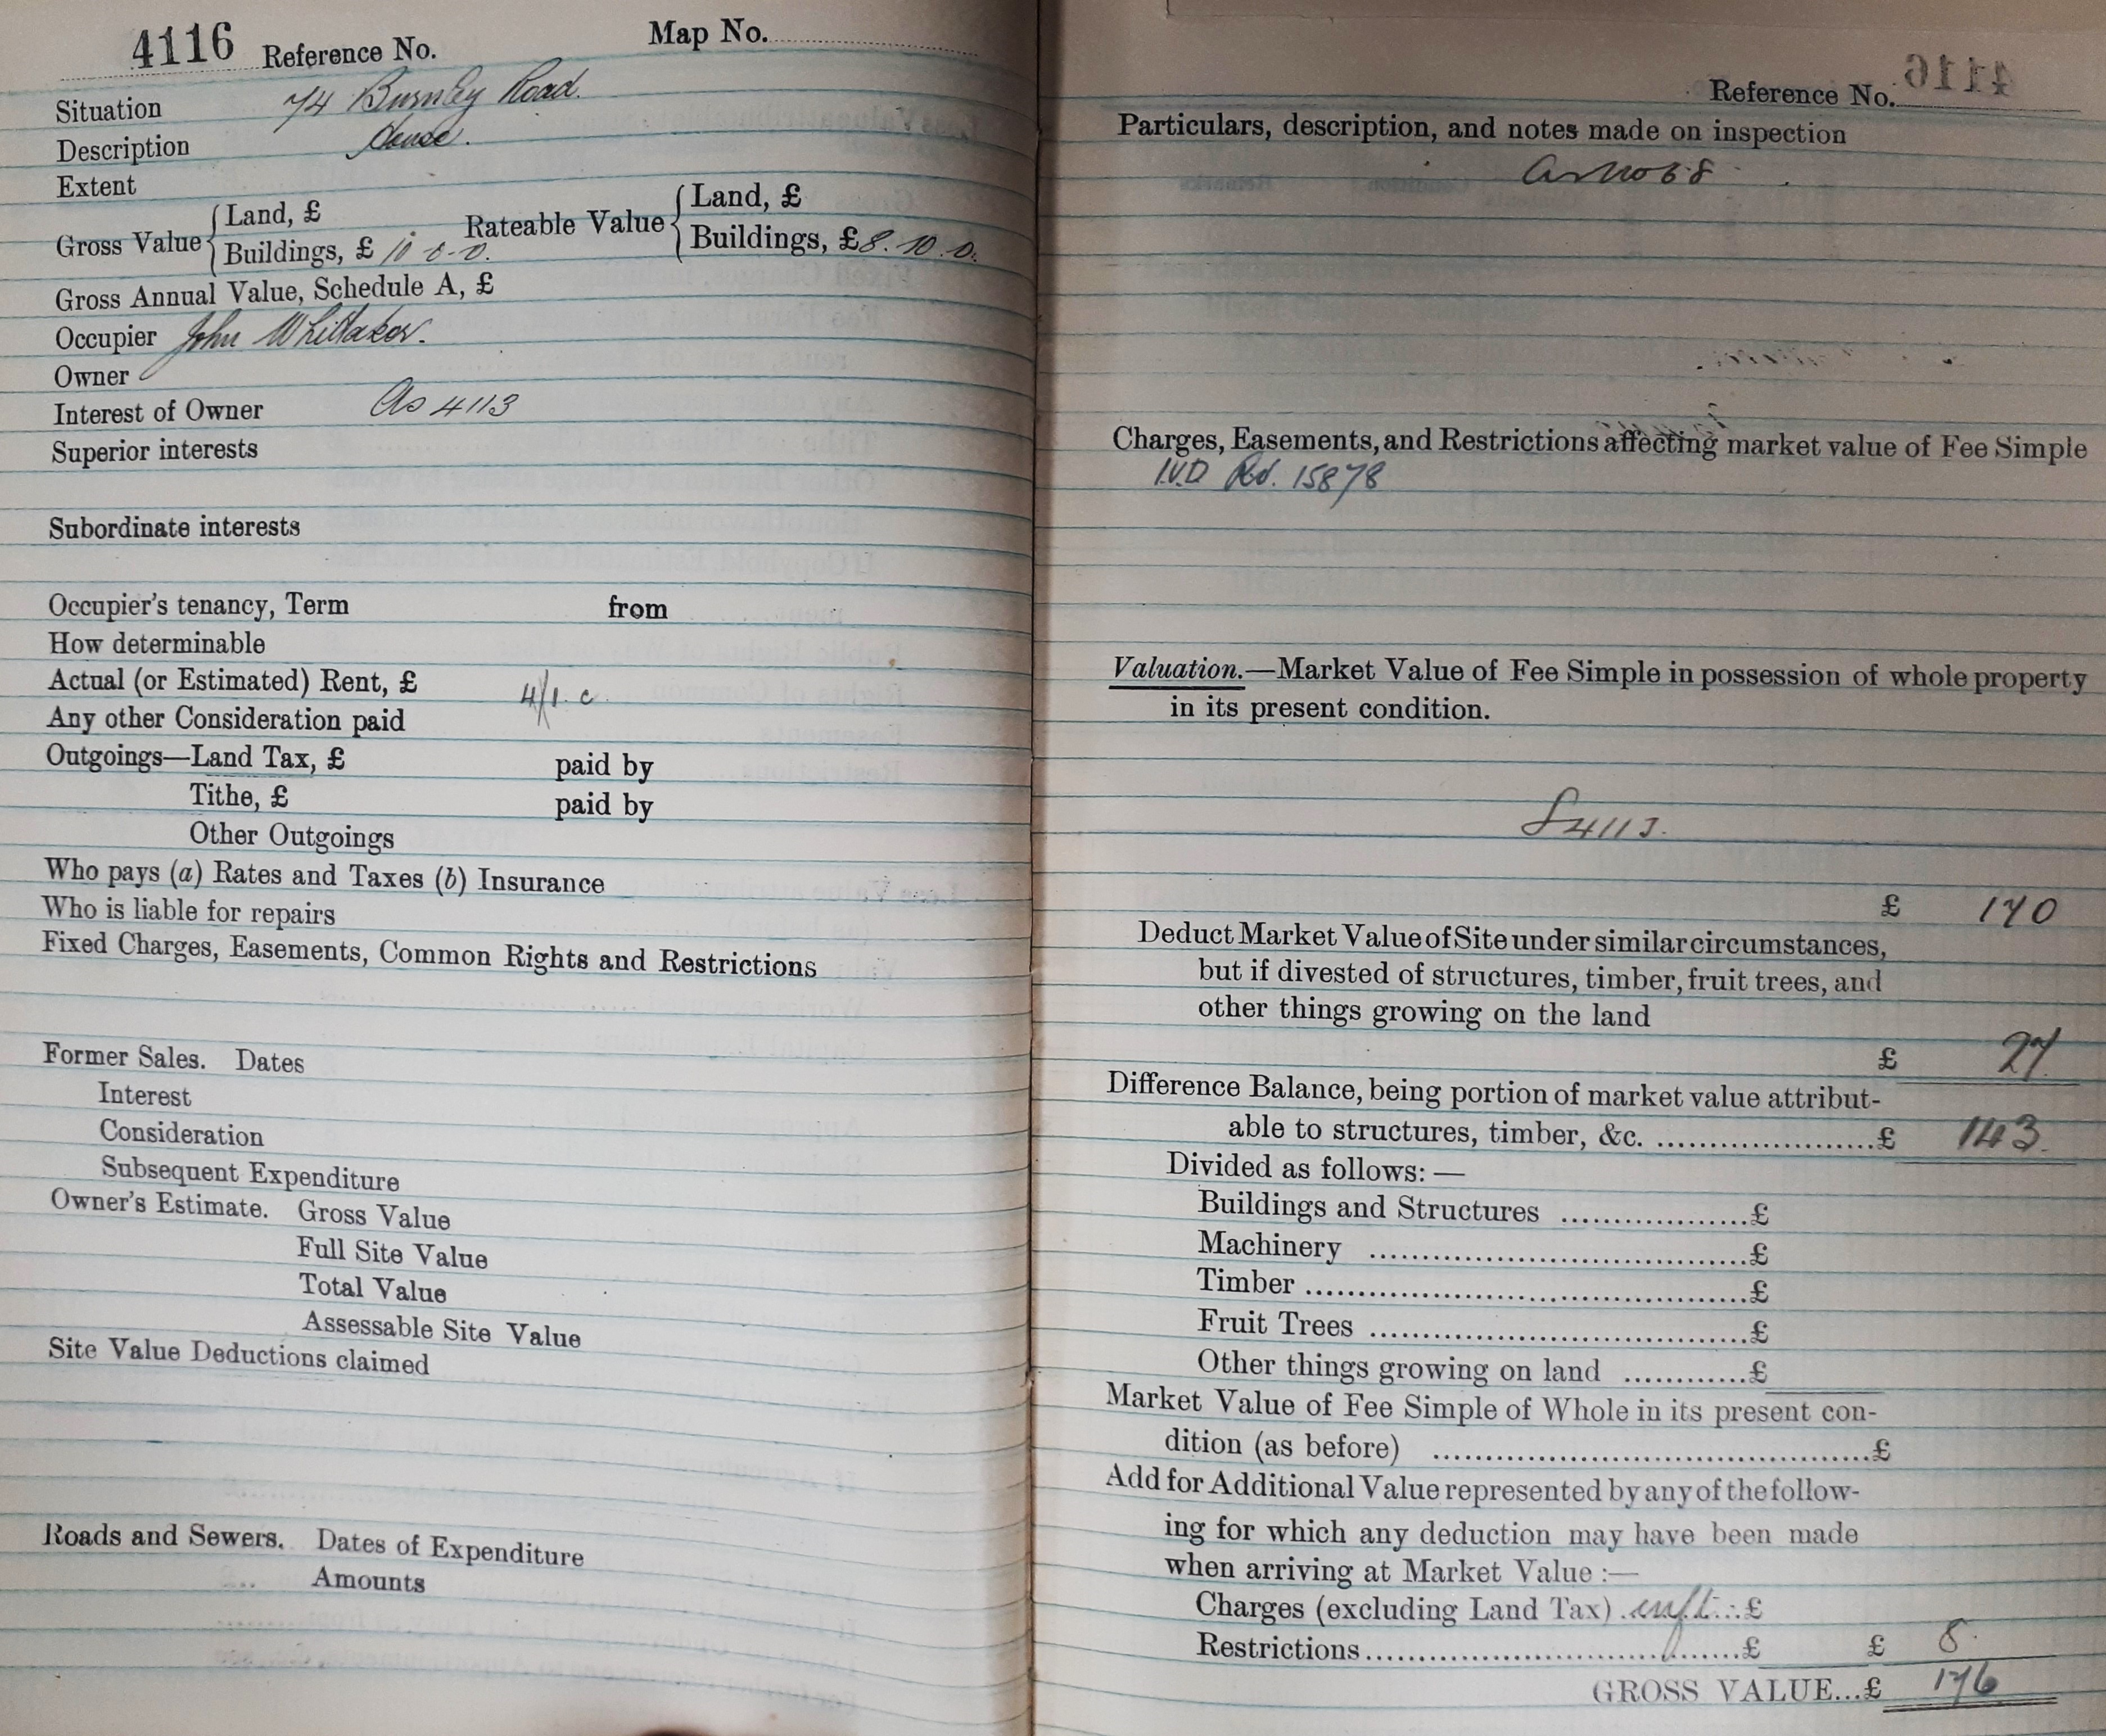 4116 Reference No. Map No.
Situation 74 Burnley Road.
Description House.
Extent
Gross Value { Land, £
Buildings, £ 10-0-0. Rateable Value { Land, £
Buildings, £ 8.10.0.
Gross Annual Value, Schedule A, £
Occupier John Whittaker.
Owner
Interest of Owner As 4113
Superior interests
Subordinate interests
Occupier's tenancy, Term from
How determinable
Actual (or Estimated) Rent, £ 4/1. c
Any other Consideration paid
Outgoings—Land Tax, £ paid by
Tithe, £ paid by
Other Outgoings
Who pays (a) Rates and Taxes (b) Insurance
Who is liable for repairs
Fixed Charges, Easements, Common Rights and Restrictions
Former Sales. Dates
Interest
Consideration
Subsequent Expenditure
Owner's Estimate. Gross Value
Full Site Value
Total Value
Assessable Site Value
Site Value Deductions claimed
Roads and Sewers. Dates of Expenditure
Amounts
Reference No. 4116
Particulars, description, and notes made on inspection
as no 68
Charges, Easements, and Restrictions affecting market value of Fee Simple
I.V.D Rd. 15878
Valuation.—Market Value of Fee Simple in possession of whole property
in its present condition.
4113.
£ 170
Deduct Market Value of Site under similar circumstances,
but if divested of structures, timber, fruit trees, and
other things growing on the land
£ 27
Difference Balance, being portion of market value attribut-
able to structures, timber, &c. £ 143
Divided as follows:—
Buildings and Structures £
Machinery £
Timber £
Fruit Trees £
Other things growing on land £
Market Value of Fee Simple of Whole in its present con-
dition (as before) £
Add for Additional Value represented by any of the follow-
ing for which any deduction may have been made
when arriving at Market Value :—
Charges (excluding Land Tax) £
Restrictions £ £ 8
GROSS VALUE...£ 176